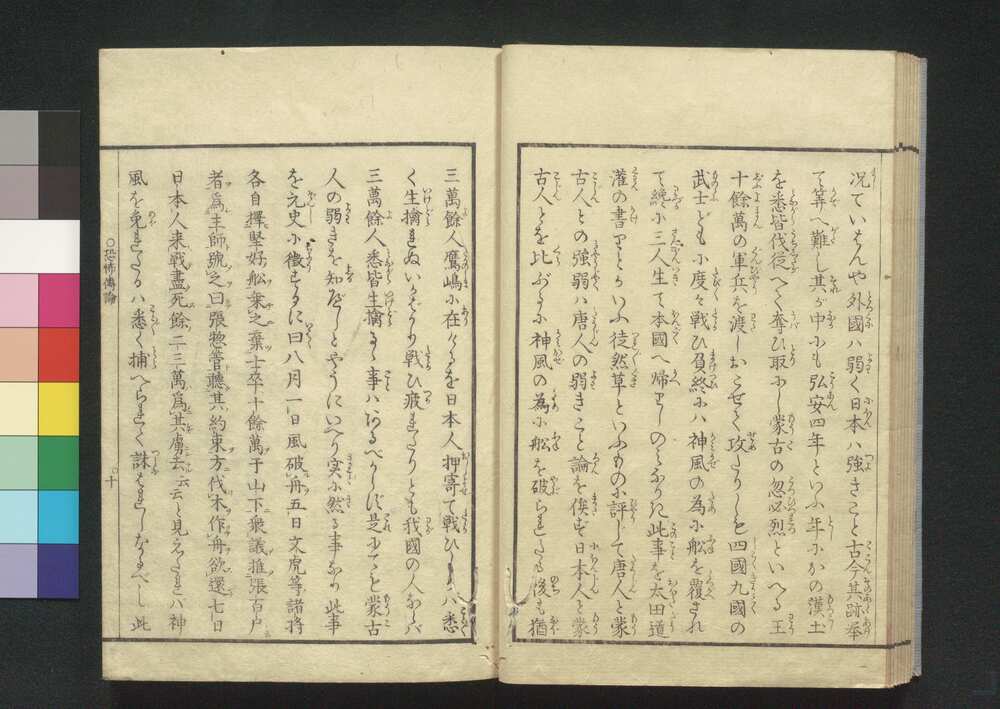 况ていはんや外國ハ弱く日本ハ強きこと古今其跡挙
て筭へ難し其が中にも弘安四年といふ年にかの漢土
を悉皆伐従へて奪ひ取にし蒙古の忽必烈といへる王
十餘萬の軍兵を渡しおこせて攻たりしを四國九國の
武士ども小度々戦ひ負終にハ神風の為に舩を覆され
て纔小三人生て本國へ帰りしのみなりき此事を太田道
灌の書りとかいふ徒然草といふものに評して唐人と蒙
古人との強弱ハ唐人の弱きこと論を俟ず日本人と蒙
古人とを比ぶるに神風の為に舩を破られたるも後も猶
三萬餘人鷹嶋に在けるを日本人押寄て戦ひしかバ悉
く生擒れぬいかばかり戦ひ疲れたりとも我國の人ならバ
三萬餘人悉皆生擒るゝ事ハあるべからず是にてを蒙古
人の弱きを知べしとやうにいへり実に然る事なり此事
を元史に徴するに曰八月一日風破舟五日文虎等諸将
各自擇堅好舩乗之棄士卒十餘萬于山下衆議推張百戸
者為主帥號之曰張惣管聽其約束方伐木作舟欲還七日
日本人来戦盡死餘二三萬為其虜去云云と見えたれバ神
風を免れたるハ悉く捕へられて誅されしなるべし此
○恐怖傳論
○十